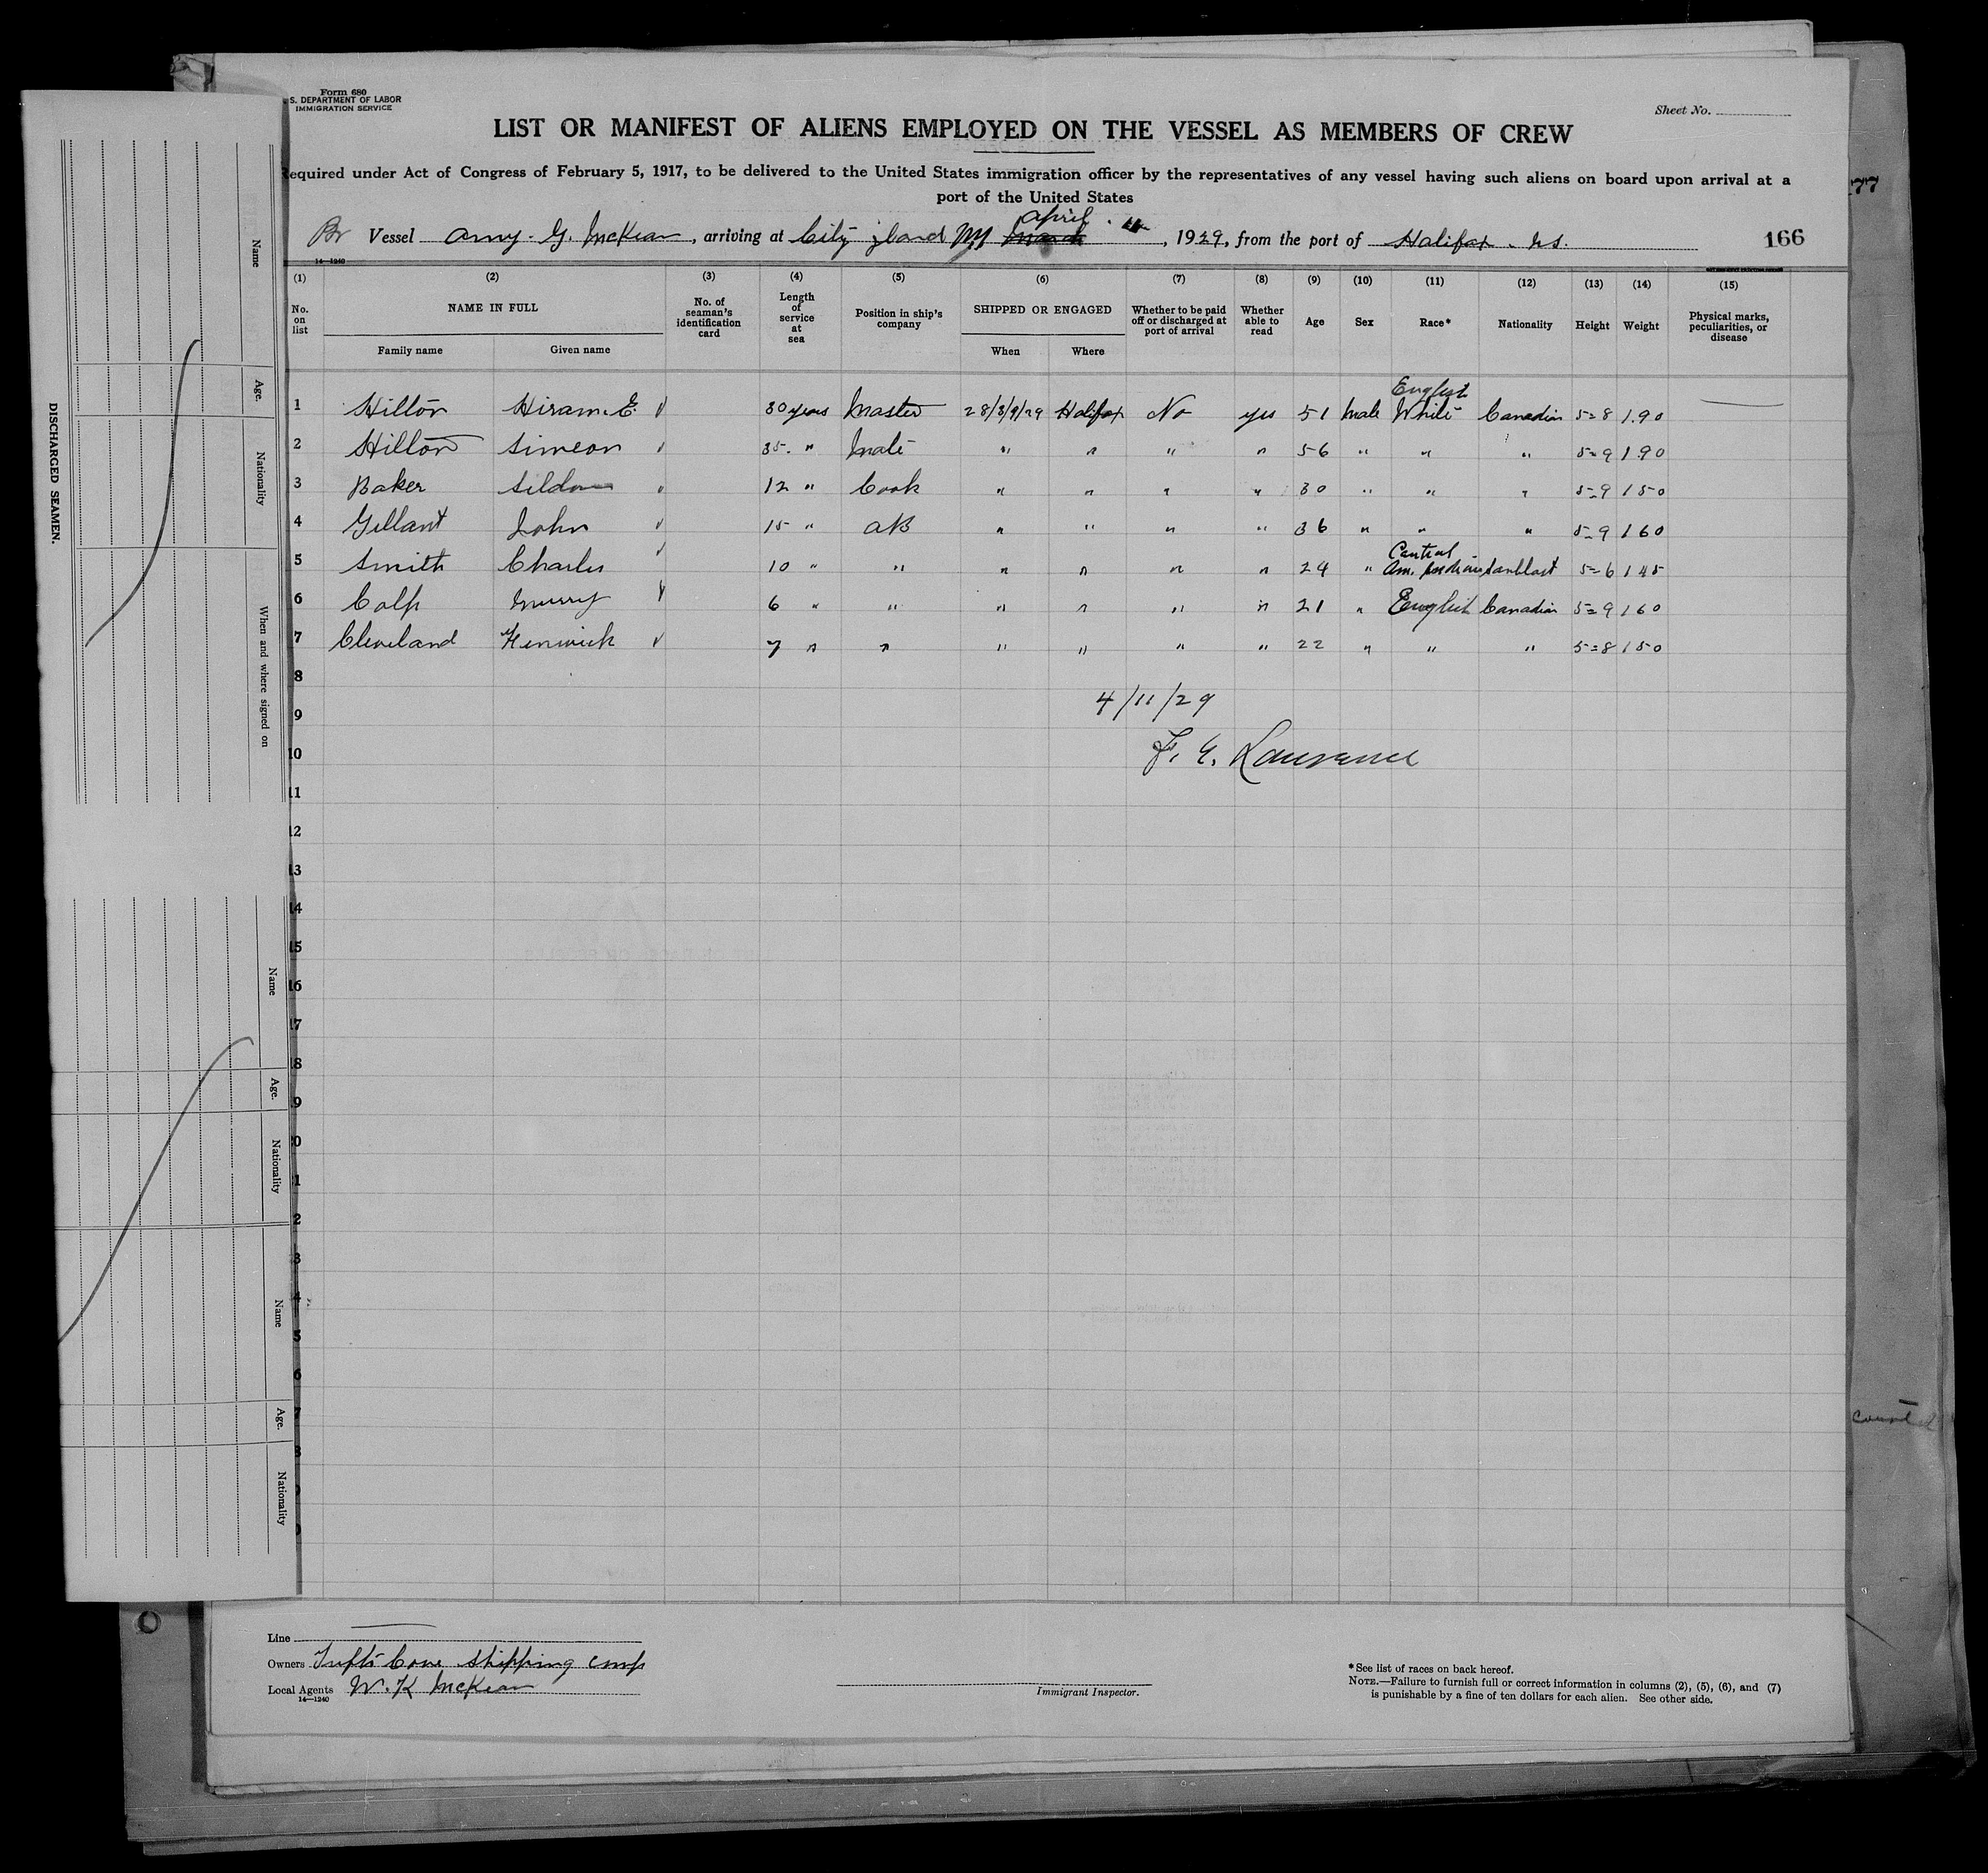 Form 680
S. DEPARTMENT OF LABOR
IMMIGRATION SERVICE
Sheet No.
LIST OR MANIFEST OF ALIENS EMPLOYED ON THE VESSEL AS MEMBERS OF CREW
Required under Act of Congress of February 5, 1917, to be delivered to the United States immigration officer by the representatives of any vessel having such aliens on board upon arrival at a
port of the United States
177
April
Br Vessel Amy. G. McKean, arriving at City Island NY March 11, 1929, from the port of Halifax. NS. 166
14—1240
(1) (2) (3) (4) (5) (6) (7) (8) (9) (10) (11) (12) (13) (14) (15)
No. on list
NAME IN FULL
Family name Given name
No. of seaman's identification card
Length of service at sea
Position in ship's company
SHIPPED OR ENGAGED
When Where
Whether to be paid off or discharged at port of arrival
Whether able to read
Age
Sex
Race*
Nationality
Height
Weight
Physical marks, peculiarities, or disease
English
1 Hilton Hiram. E. 30 years Master 28/3/9/29 Halifax No yes 51 Male White Canadian 5=8 1.90
2 Hilton Simeon 35 " Mate " " " " 56 " " " 5=9 190
3 Baker 12 " Cook " " " " 30 " " " 5=9 150
4 Gillant John 15 " AB " " " " 36 " " " 5=9 160
Central
5 Smith Charles 10 " " " " " " 29 " Am. Indian 5=6 145
6 Colp Murry 6 " " " " " " 21 " English Canadian 5=9 160
7 Cleveland Fenwick 7 " " " " " " 22 " " " 5=8 150
8
4/11/29
9
F. E. Lawrence
10
11
12
13
14
15
16
17
18
19
20
1
2
3
4
5
6
7
8
DISCHARGED SEAMEN.
Name
Age.
Nationality
When and where signed on
Name
Age.
Nationality
Name
Age.
Nationality
Line
Owners Tufts Cove Shipping Comp
Local Agents W. K McKean
14—1240
Immigrant Inspector.
*See list of races on back hereof.
NOTE.—Failure to furnish full or correct information in columns (2), (5), (6), and (7)
is punishable by a fine of ten dollars for each alien. See other side.